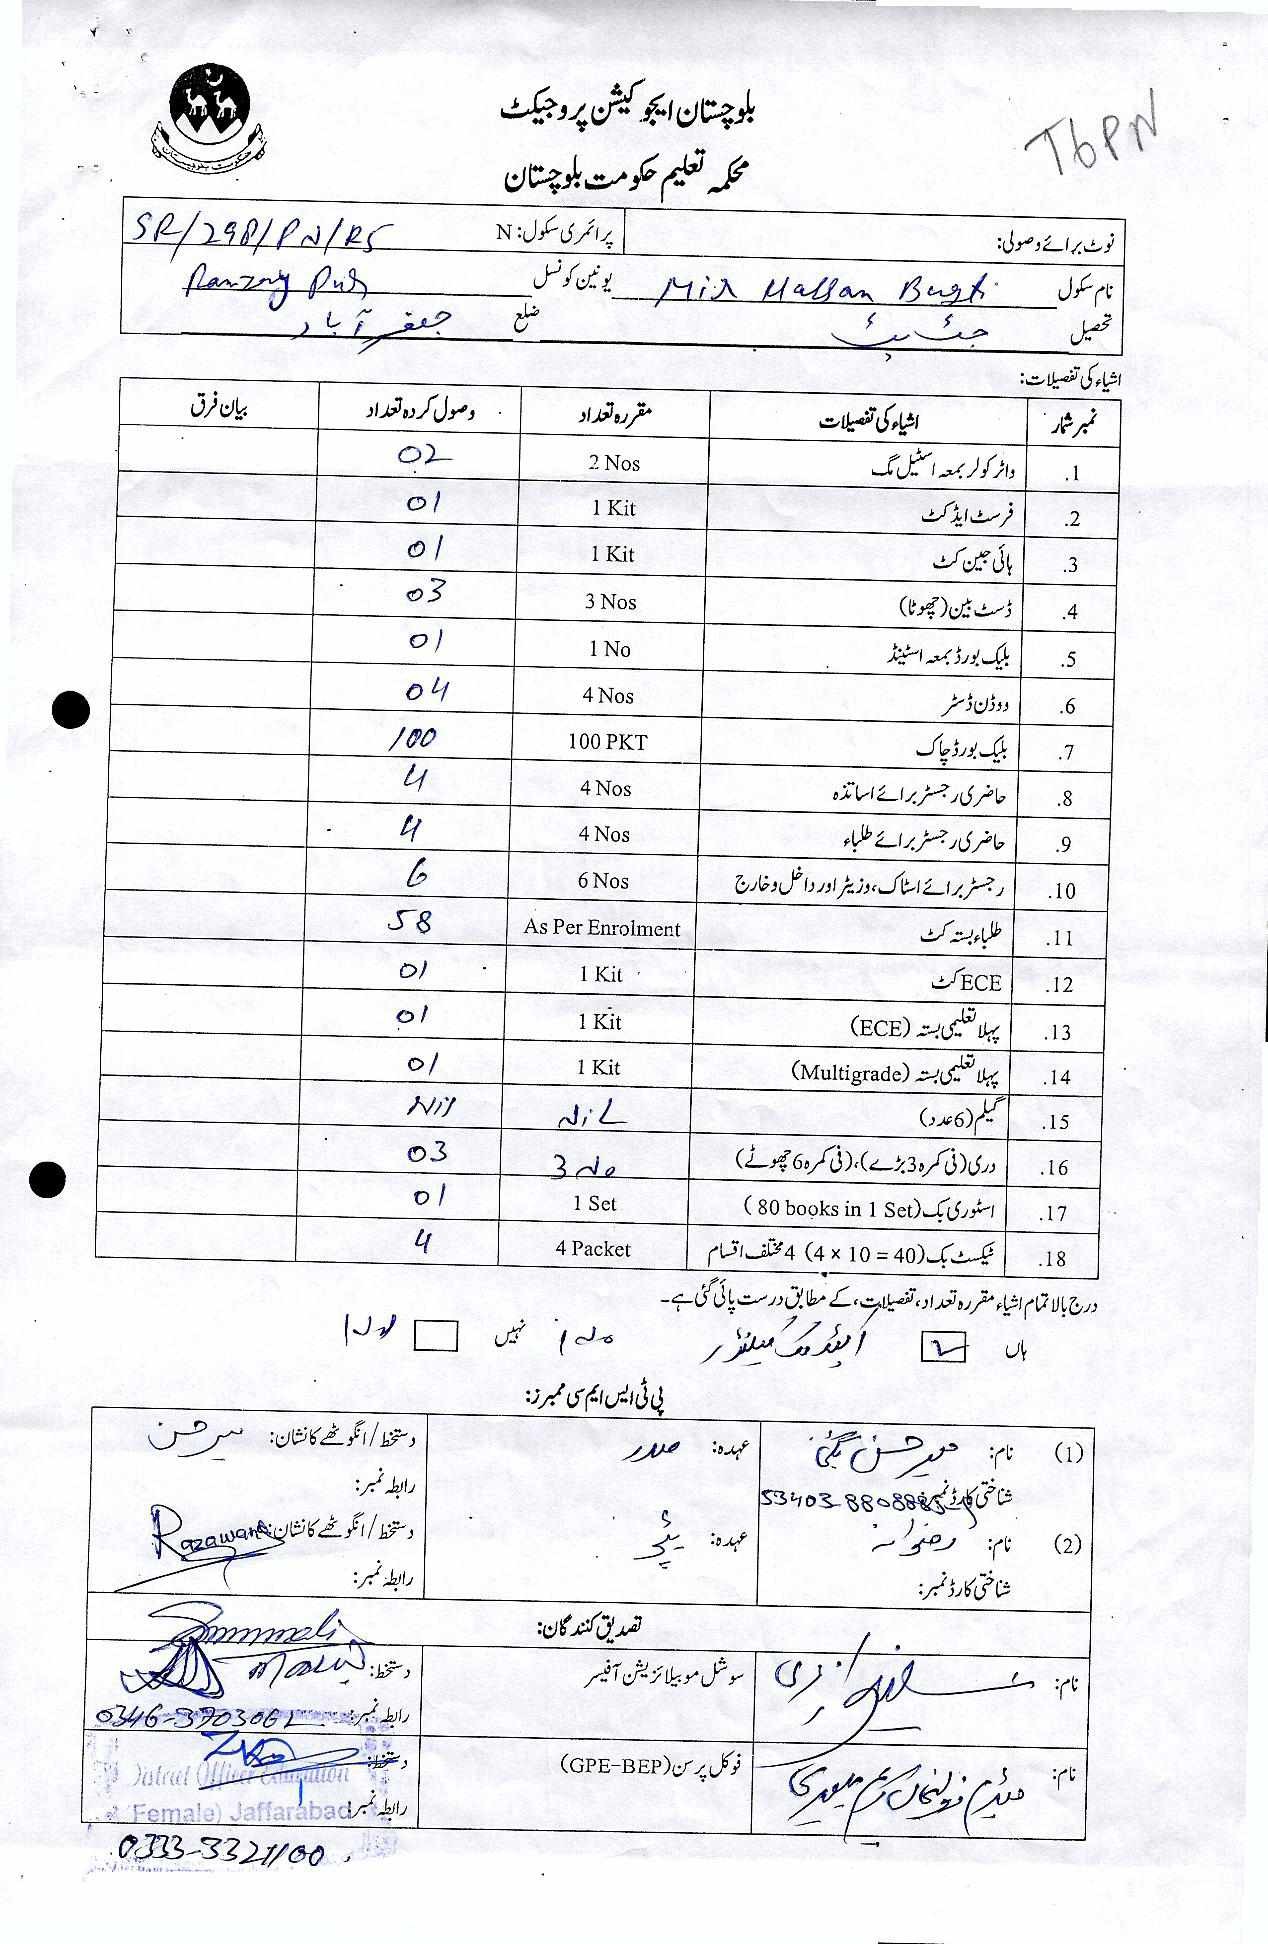 TbPN
حکومت بلوچستان
بلوچستان ایجوکیشن پروجیکٹ
محکمہ تعلیم حکومت بلوچستان
نوٹ برائے وصولی: پرائمری سکول: N SR/298/PN/RS
نام سکول Mir Hassan Bugti یونین کونسل
تحصیل جھٹ پٹ ضلع جعفر آباد
اشیاء کی تفصیلات:
نمبر شمار اشیاء کی تفصیلات مقررہ تعداد وصول کردہ تعداد بیان فرق
1. واٹر کولر بمعہ اسٹیل مگ 2 Nos 02
2. فرسٹ ایڈ کٹ 1 Kit 01
3. ہائی جین کٹ 1 Kit 01
4. ڈسٹ بین (چھوٹا) 3 Nos 03
5. بلیک بورڈ بمعہ اسٹینڈ 1 No 01
6. ووڈن ڈسٹر 4 Nos 04
7. بلیک بورڈ چاک 100 PKT 100
8. حاضری رجسٹر برائے اساتذہ 4 Nos 4
9. حاضری رجسٹر برائے طلباء 4 Nos 4
10. رجسٹر برائے اسٹاک، وزیٹر اور داخل و خارج 6 Nos 6
11. طلباء بستہ کٹ As Per Enrolment 58
12. ECE کٹ 1 Kit 01
13. پہلا تعلیمی بستہ (ECE) 1 Kit 01
14. پہلا تعلیمی بستہ (Multigrade) 1 Kit 01
15. گیلم (6 عدد) NiL Nil
16. دری (فی کمرہ 3 بڑے)، (فی کمرہ 6 چھوٹے) 3 No 03
17. اسٹوری بک (80 books in 1 Set) 1 Set 01
18. ٹیکسٹ بک (4 × 10 = 40) 4 مختلف اقسام 4 Packet 4
درج بالا تمام اشیاء مقررہ تعداد، تفصیلات، کے مطابق درست پائی گئی ہے۔
ہاں نہیں
پی ٹی ایس ایم سی ممبرز:
(1) نام: میر حسن بگٹی عہدہ: صدر دستخط/انگوٹھے کا نشان: میر حسن
شناختی کارڈ نمبر: رابطہ نمبر:
(2) نام: رضوانہ عہدہ: دستخط/انگوٹھے کا نشان: Razawana
شناختی کارڈ نمبر: رابطہ نمبر:
تصدیق کنندگان:
نام: سوشل موبیلائزیشن آفیسر دستخط:
رابطہ نمبر: 0346-3703062
نام: فوکل پرسن (GPE-BEP) دستخط:
District Officer Education
رابطہ نمبر: (Female) Jaffarabad
0333-3321100